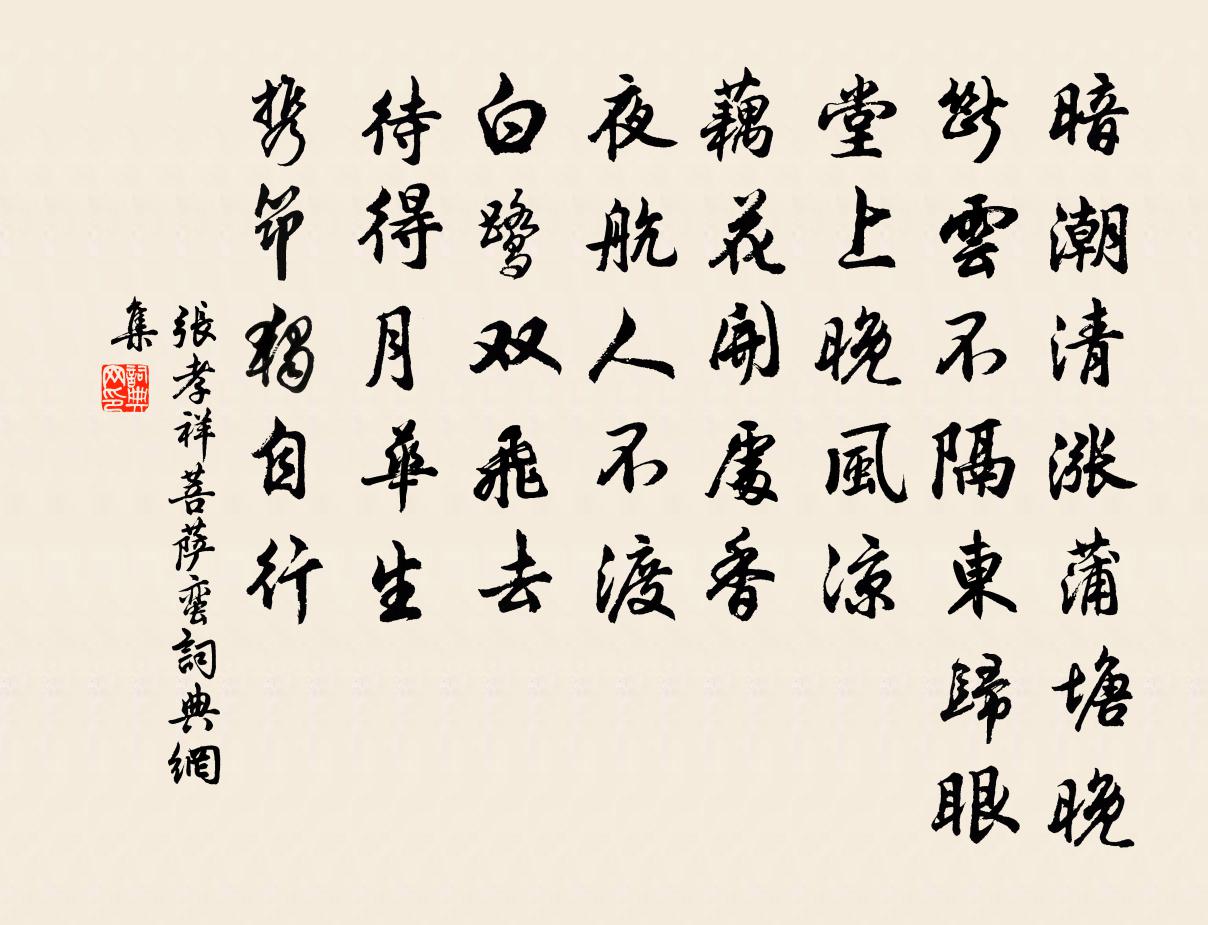 暗潮清漲蒲塘晚
斷雲不隔東歸眼
堂上晚風涼
藕花開處香
夜航人不渡
白鷺双飛去
待得月華生
携筇獨自行
張孝祥菩萨蛮詞典網
集
詞典網印